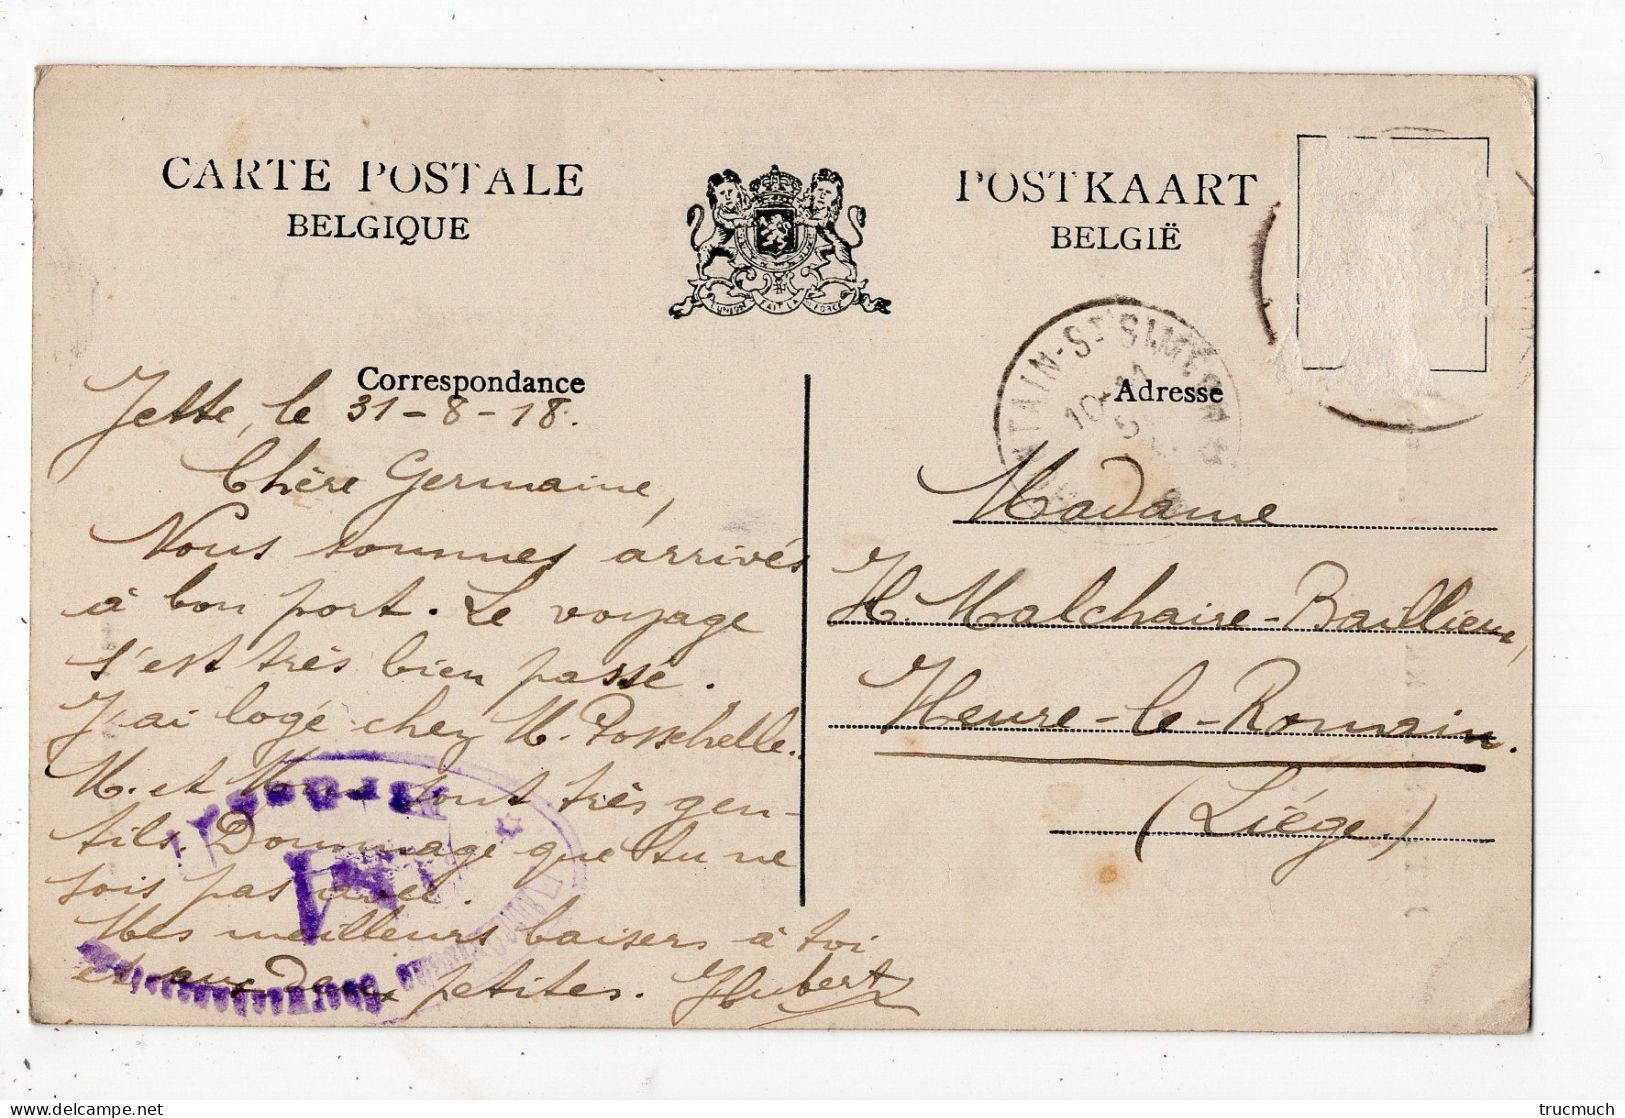 CARTE POSTALE
BELGIQUE
POSTKAART
BELGIË
L'UNION FAIT LA FORCE
Correspondance
Adresse
Jette, le 31-8-18.
Chère Germaine,
Nous sommes arrivés
à bon port. Le voyage
s'est très bien passé.
J'ai logé chez M. Posschelle.
M. et Mme sont très gen-
tils. Dommage que tu ne
sois pas avec.
Mes meilleurs baisers à toi
et aux deux petites. Hubert
Madame
H. Malchaire-Baillieux,
Heure-le-Romain.
(Liége.)
TAIN-St SIM
10-11
trucmuch